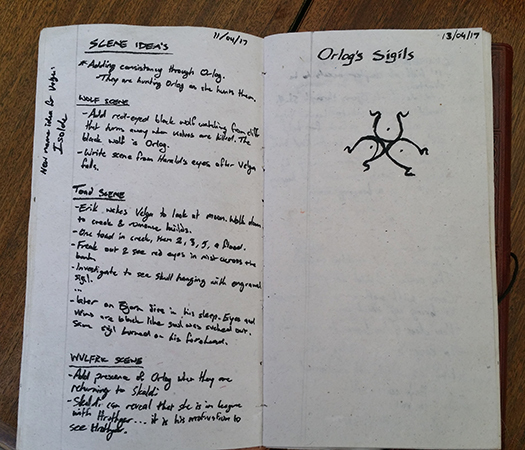 11/04/17
SCENE IDEA'S
* Adding consistency through Orlog.
- They are hunting Orlog as she hunts them.
WOLF SCENE
- Add red-eyed black wolf watching from cliff
that turns away when wolves are killed. The
black wolf is Orlog.
- Write scene from Harald's eyes after Velga
falls.
TOAD SCENE
- Erik wakes Velga to look at moon. Walk down
to creek & romance builds.
- One toad in creek, then 2, 3, 5, a flood.
- Freak out & see red eyes in mist across the
bank.
- Investigate to see skull hanging with engraved
sigil.
...
- Later on Egorn dies in his sleep. Eyes and
veins are black like soul was sucked out.
Same sigil burned on his forehead.
WULFRIC SCENE
- Add presence of Orlog when they are
returning to Skaldi
- Skaldi can reveal that she is in league
with Hrothgar... it is his motivation to
see Hrothgar.
New name idea for Velga:
Isolde
13/04/17
Orlog's Sigils